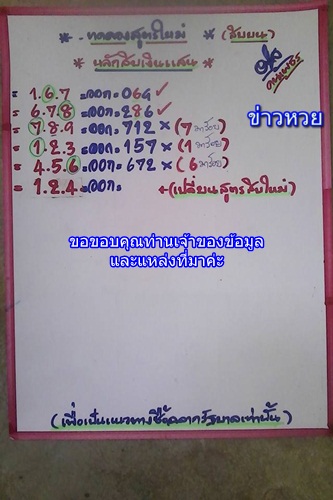 * . ทดลองสูตรใหม่ * (สิบบน)
* หลักสิบเงินแสน *
= 1.6.7 =ออก= 069 ✓
= 6.7.8 =ออก= 286 ✓
= 7.8.9 =ออก= 712 × (7 มาร้อย)
= 1.2.3 =ออก= 157 × (1 มาร้อย)
= 4.5.6 =ออก= 672 × (6 มาร้อย)
= 1.2.4 =ออก= +(เปลี่ยนสูตรสิบใหม่)
ข่าวหวย
ขอขอบคุณท่านเจ้าของข้อมูล
และแหล่งที่มาค่ะ
(เพื่อเป็นแนวทางซื้อสลากรัฐบาลเท่านั้น)